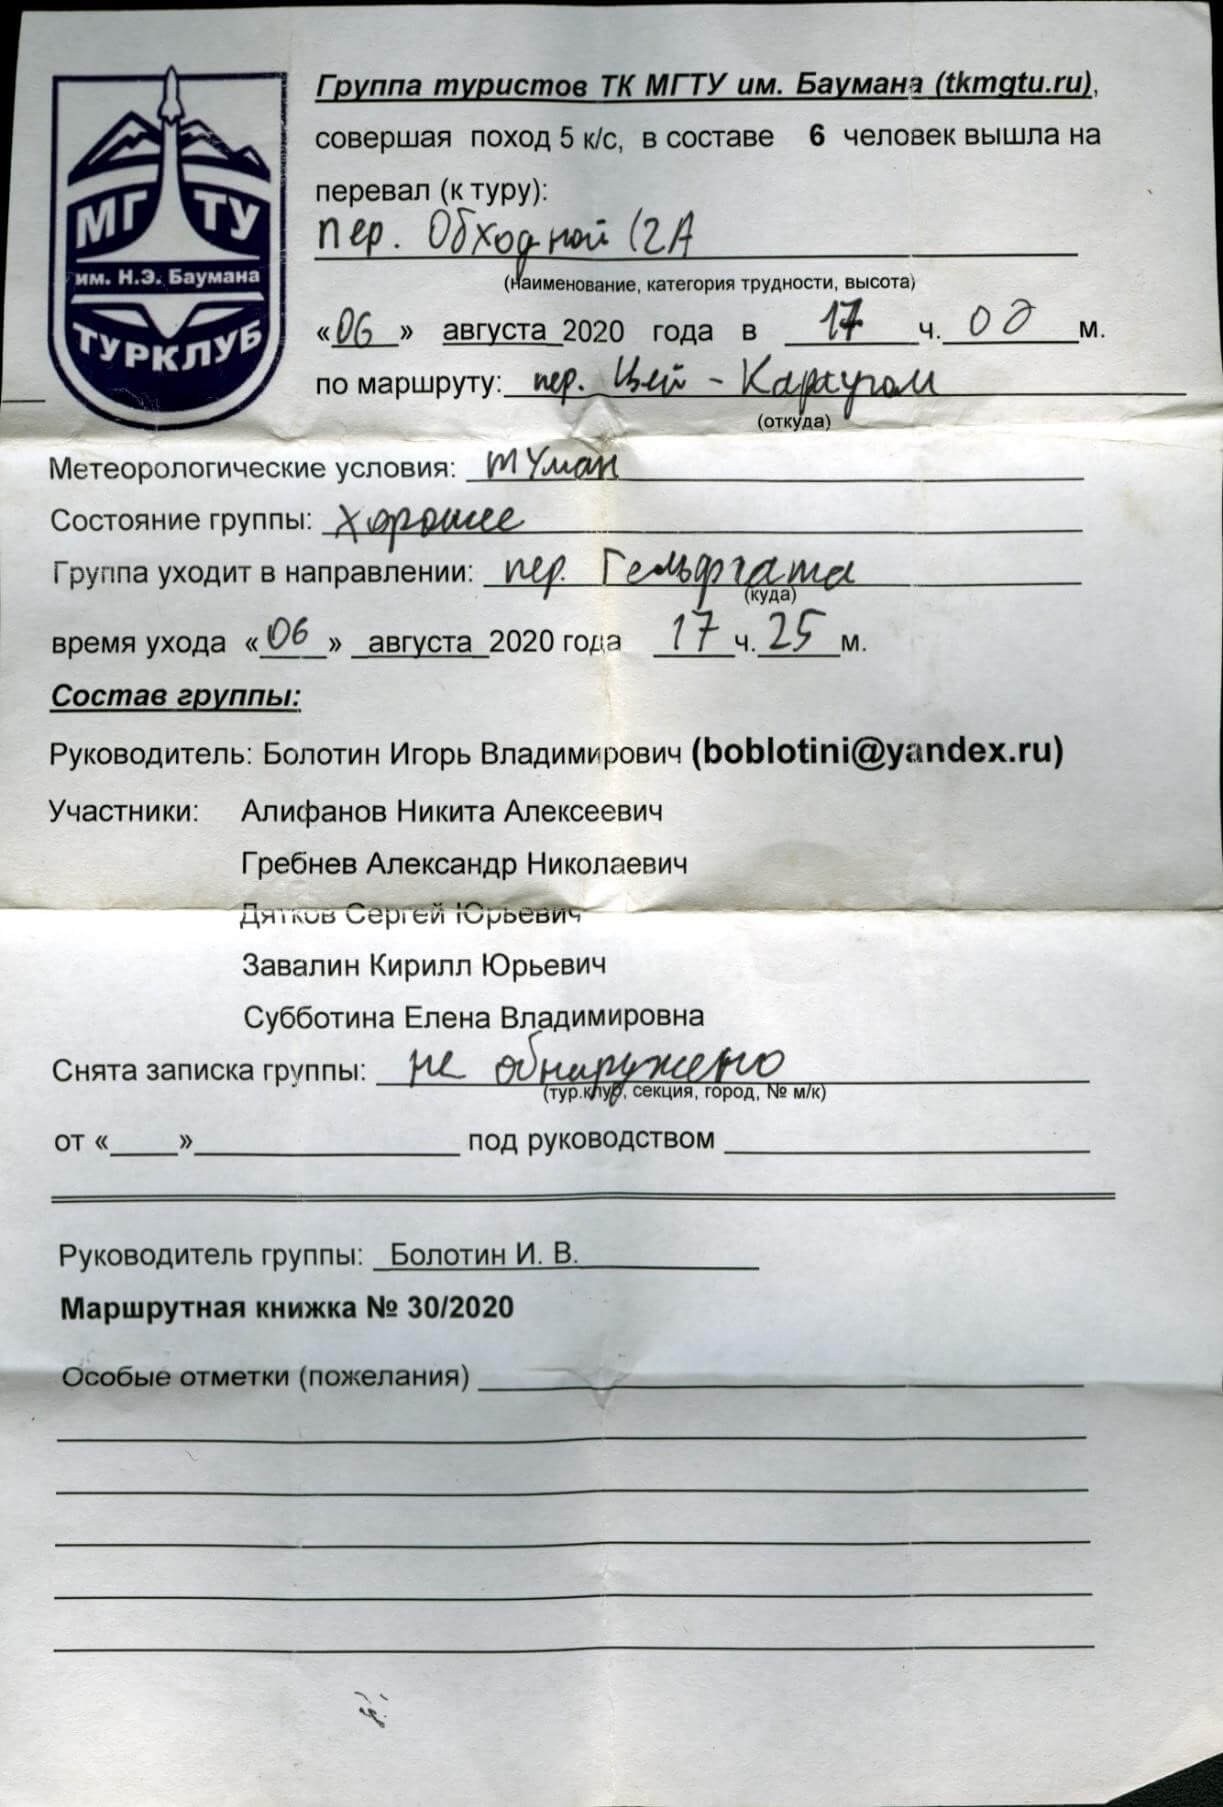 МГ ТУ
им. Н.Э. Баумана
ТУРКЛУБ
Группа туристов ТК МГТУ им. Баумана (tkmgtu.ru),
совершая поход 5 к/с, в составе 6 человек вышла на
перевал (к туру):
пер. Обходной (2А
(наименование, категория трудности, высота)
«06» августа 2020 года в 17 ч. 00 м.
по маршруту: пер. Цей - Караугом
(откуда)
Метеорологические условия: туман
Состояние группы: хорошее
Группа уходит в направлении: пер. Гельфгата
(куда)
время ухода «06» августа 2020 года 17 ч. 25 м.
Состав группы:
Руководитель: Болотин Игорь Владимирович (boblotini@yandex.ru)
Участники: Алифанов Никита Алексеевич
Гребнев Александр Николаевич
Дятков Сергей Юрьевич
Завалин Кирилл Юрьевич
Субботина Елена Владимировна
Снята записка группы: не обнаружено
(тур.клуб, секция, город, № м/к)
от «____»________________ под руководством ______________________
Руководитель группы: Болотин И. В.
Маршрутная книжка № 30/2020
Особые отметки (пожелания)